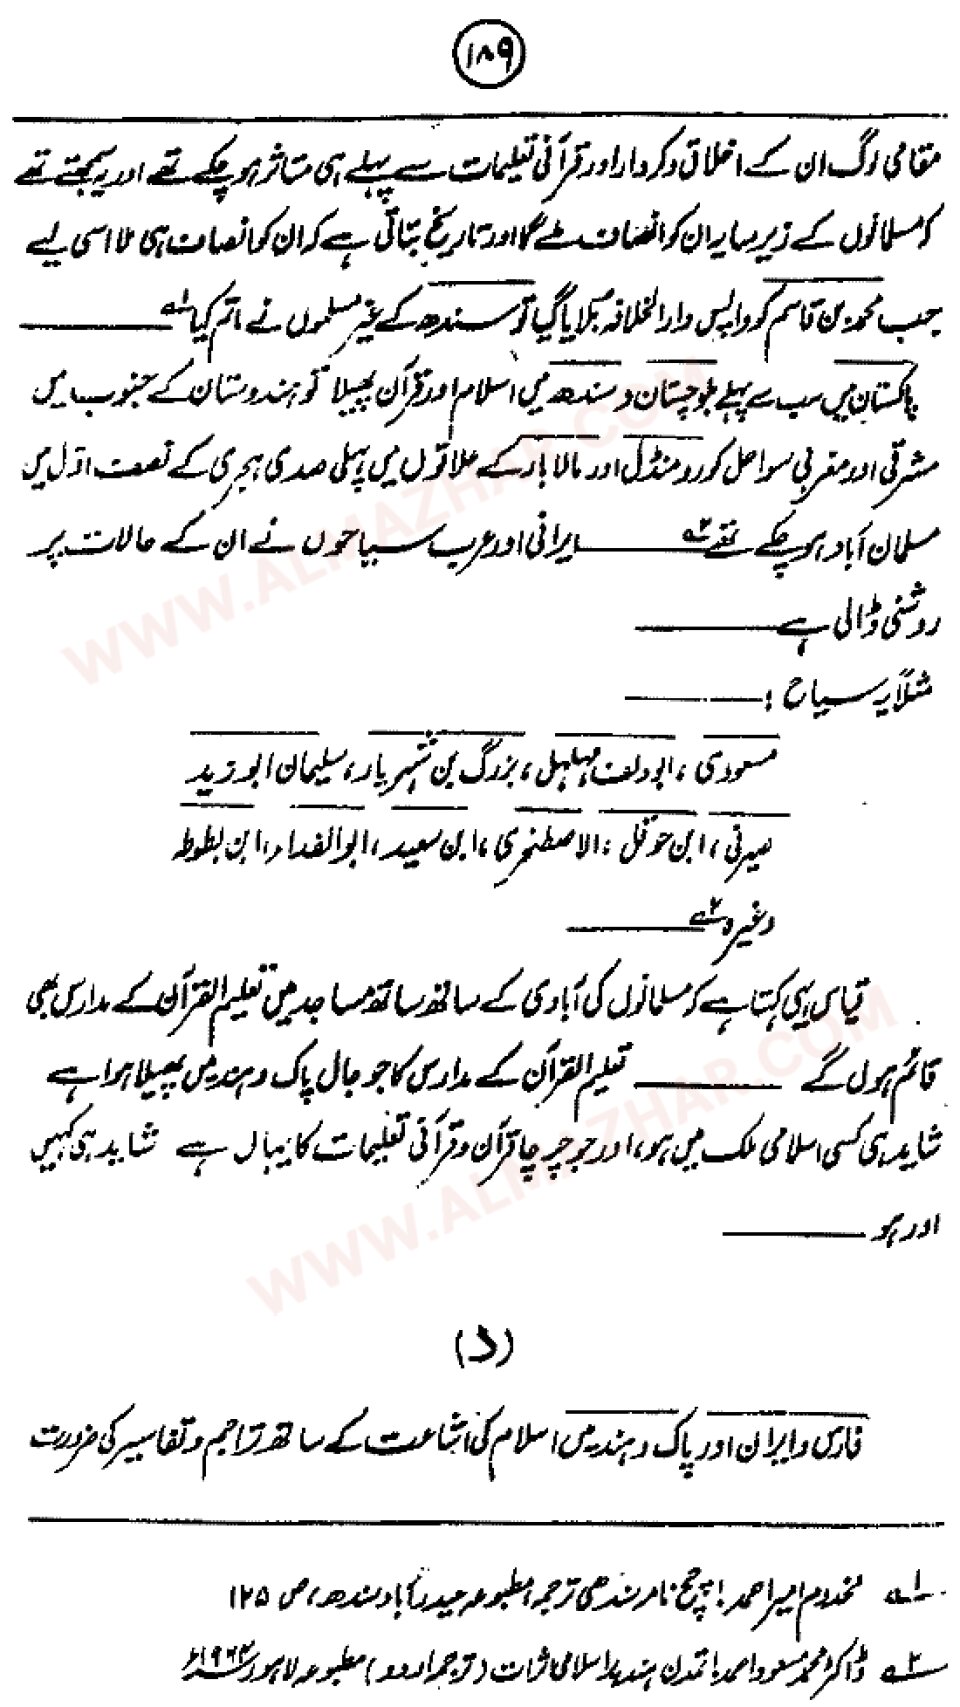 ۱۸۹
مقامی لوگ ان کے اخلاق و کردار اور قرآنی تعلیمات سے پہلے ہی متاثر ہو چکے تھے اور یہ سمجھتے تھے
کہ مسلمانوں کے زیر سایہ ان کو انصاف ملے گا اور تاریخ بتاتی ہے کہ ان کو انصاف ہی ملا اسی لیے
جب محمد بن قاسم کو واپس دارالخلافہ بلایا گیا تو سندھ کے غیر مسلموں نے ماتم کیا ۱؎ ــــــــ
پاکستان میں سب سے پہلے بلوچستان و سندھ میں اسلام اور قرآن پھیلا تو ہندوستان کے جنوب میں
مشرقی اور مغربی سواحل کورومنڈل اور مالابار کے علاقوں میں پہلی صدی ہجری کے نصف اوّل میں
مسلمان آباد ہو چکے تھے ۲؎ ــــــــ ایرانی اور عرب سیاحوں نے ان کے حالات پر
روشنی ڈالی ہے ــــــــ
مثلاً یہ سیاح : ــــــــ
مسعودی ، ابودلف مہلہل ، بزرگ بن شہریار ، سلیمان ابوزید
سیرفی ، ابن حوقل ، الاصطخری ، ابن سعید ، ابوالفداء ، ابن بطوطہ
وغیرہ ۲؎ ــــــــ
قیاس یہی کہتا ہے کہ مسلمانوں کی آبادی کے ساتھ ساتھ مساجد میں تعلیم القرآن کے مدارس بھی
قائم ہوں گے ــــــــ تعلیم القرآن کے مدارس کا جو جال پاک و ہند میں پھیلا ہوا ہے
شاید ہی کسی اسلامی ملک میں ہو ، اور جو چرچا قرآن و قرآنی تعلیمات کا یہاں ہے شاید ہی کہیں
اور ہو ــــــــ
(د)
فارس و ایران اور پاک و ہند میں اسلام کی اشاعت کے ساتھ تراجم و تفاسیر کی ضرورت
۱؎ مخدوم امیر احمد : چچ نامہ سندھی ترجمہ مطبوعہ حیدرآباد سندھ ، ص ۱۲۵
۲؎ ڈاکٹر محمد مسعود احمد : تمدن ہند پر اسلامی اثرات (ترجمہ اردو) مطبوعہ لاہور ۱۹۶۴ء
WWW.ALMAZHAR.COM
WWW.ALMAZHAR.COM